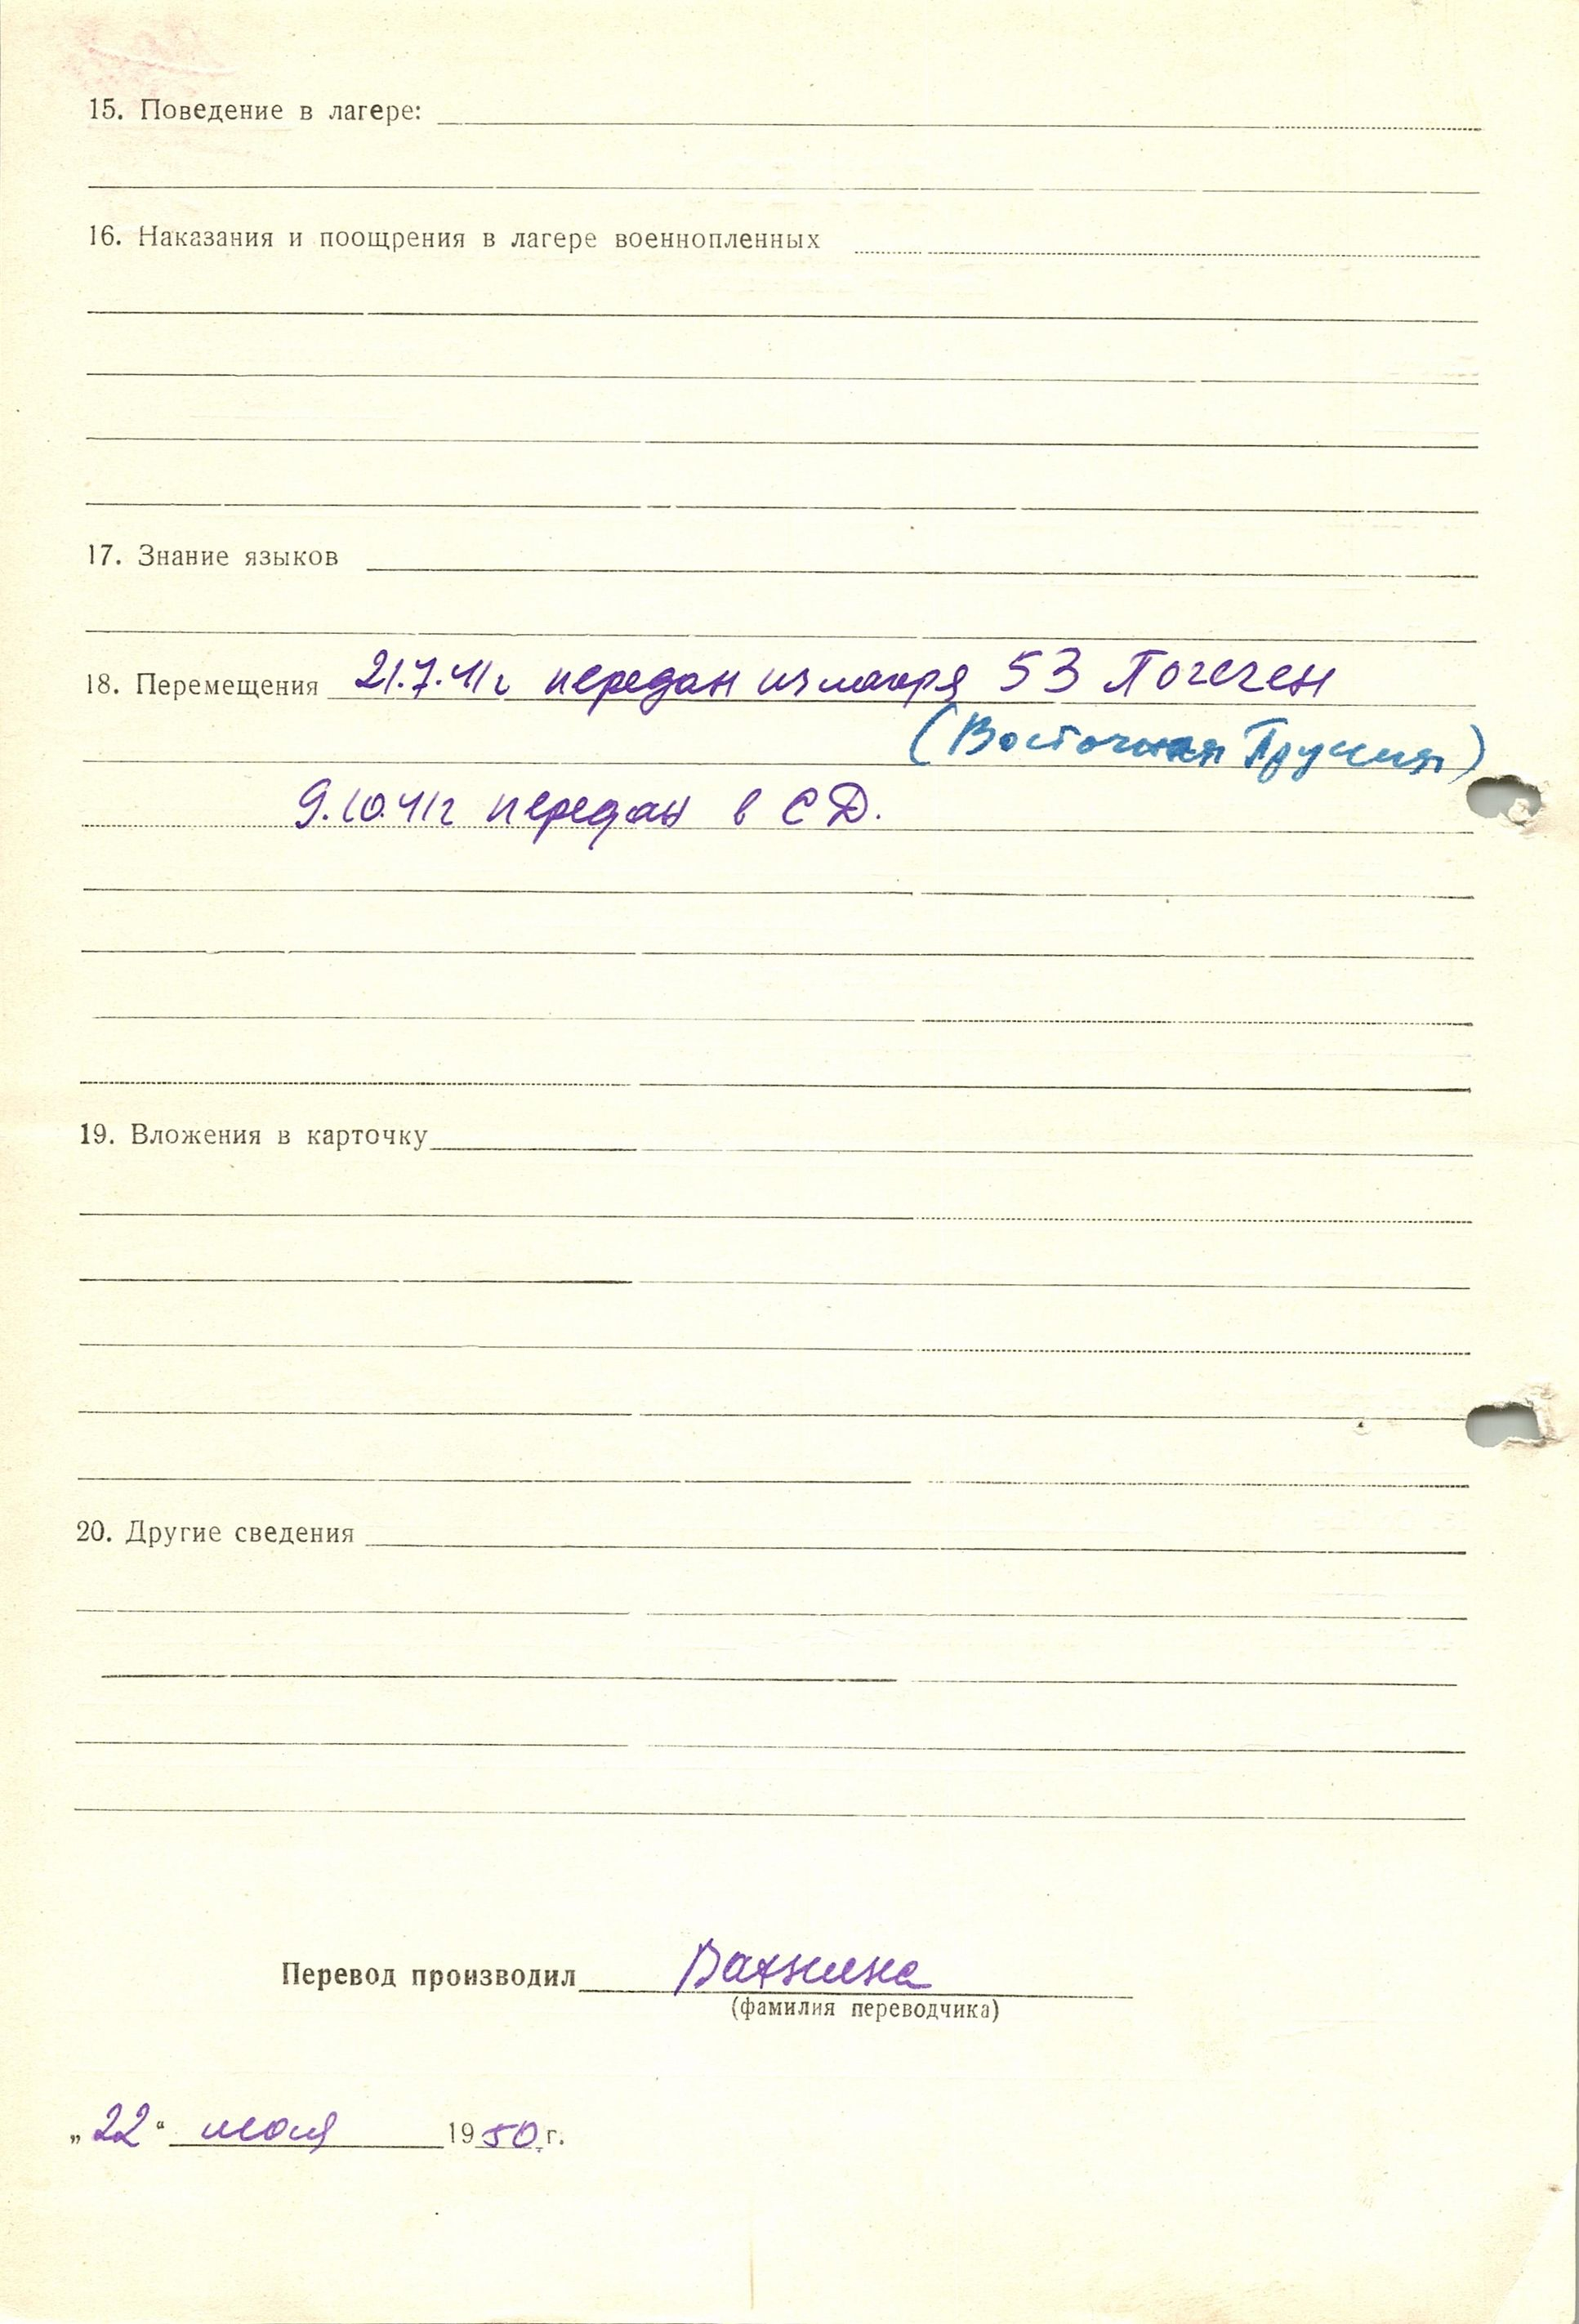 15. Поведение в лагере:
16. Наказания и поощрения в лагере военнопленных
17. Знание языков
18. Перемещения 21.7.41г передан из лагеря 53 Погеген
(Восточная Пруссия)
9.10.41г передан в СД.
19. Вложения в карточку
20. Другие сведения
Перевод производил Вахнина
(фамилия переводчика)
„22“ июля 1950 г.